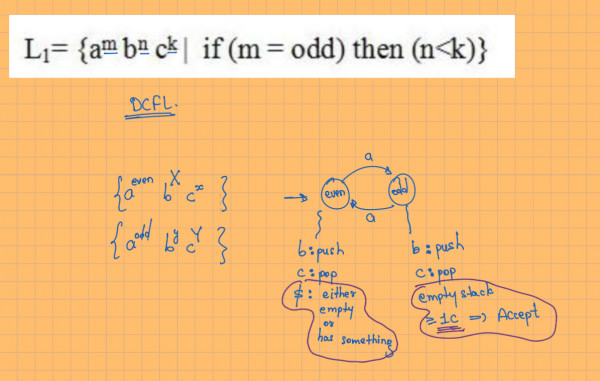 L₁= {aᵐ bⁿ cᵏ | if (m = odd) then (n<k)}
DCFL.
{a^even b^X c^x}
{a^odd b^y c^Y}
a
even
odd
a
b: push
c: pop
$: either
empty
or
has something
b: push
c: pop
empty stack
≥ 1c ⇒ Accept